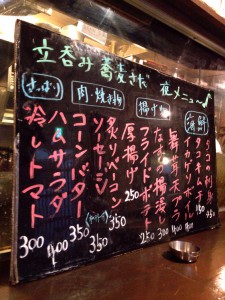 立呑み蕎麦さだ 夜メニュー
海鮮
タコの刺身 350
タコキムチ
イカゲソボイル
揚げ物
舞茸天プラ
なすの揚浸し
フライドポテト
厚揚げ 250
肉・焼き物
炙りベーコン 350
ソーセージ 350
さっぱり
コーンバター 350
ハムサラダ 400
冷しトマト 300